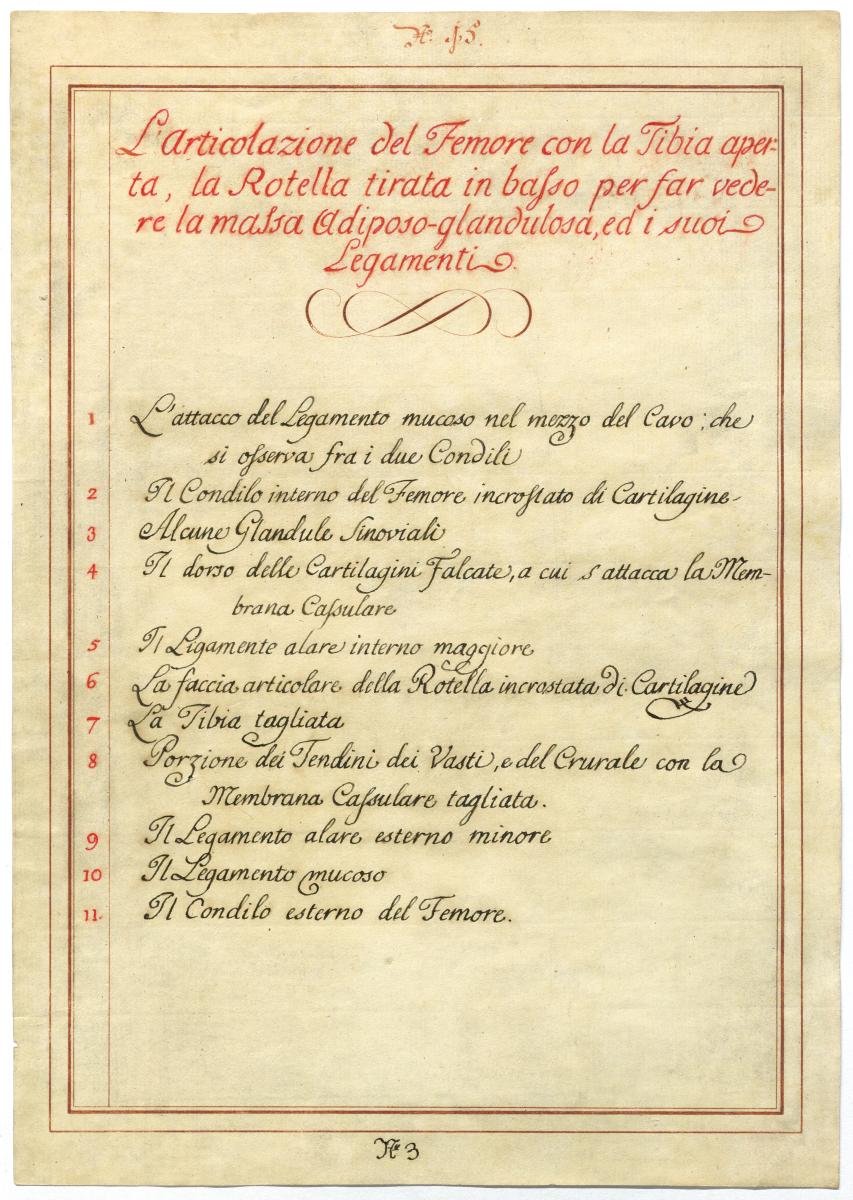 N.º 15.
L'articolazione del Femore con la Tibia aper-
ta, la Rotella tirata in basso per far vede-
re la massa Adiposo-glandulosa, ed i suoi
Legamenti.
1 L'attacco del Legamento mucoso nel mezzo del Cavo; che
si osserva fra i due Condili
2 Il Condilo interno del Femore incrostato di Cartilagine
3 Alcune Glandule Sinoviali
4 Il dorso delle Cartilagini Falcate, a cui s'attacca la Mem-
brana Cassulare
5 Il Ligamente alare interno maggiore
6 La faccia articolare della Rotella incrostata di Cartilagine
7 La Tibia tagliata
8 Porzione dei Tendini dei Vasti, e del Crurale con la
Membrana Cassulare tagliata.
9 Il Legamento alare esterno minore
10 Il Legamento mucoso
11. Il Condilo esterno del Femore.
Nº 3